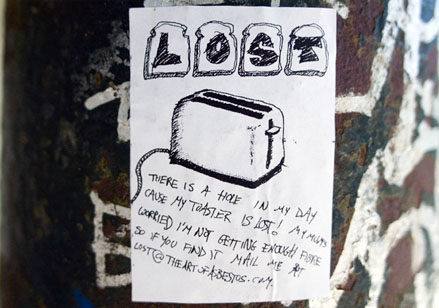 LOST
THERE IS A HOLE IN MY DAY
CAUSE MY TOASTER IS LOST! MY MUMS
WORRIED I'M NOT GETTING ENOUGH FIBRE
SO IF YOU FIND IT MAIL ME AT
LOST@THEARTOFASBESTOS.COM